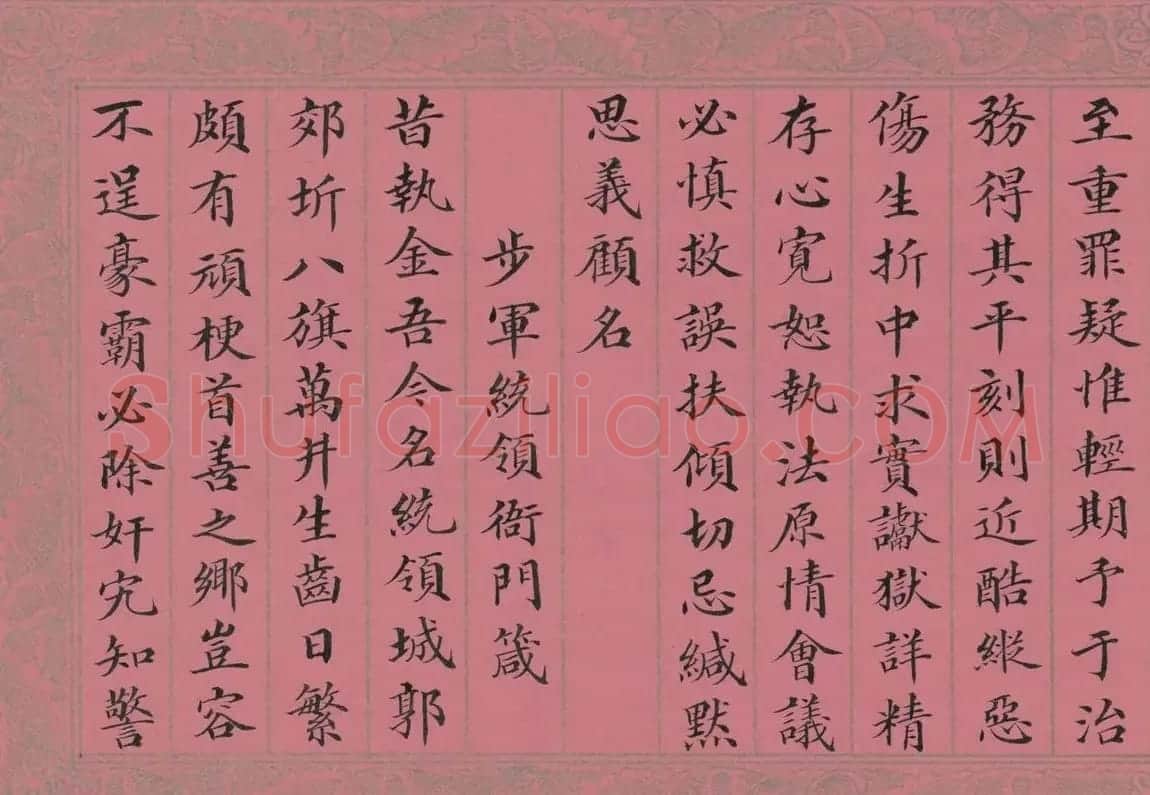 至重罪疑惟輕期予于治
務得其平刻則近酷縱惡
傷生折中求實讞獄詳精
存心寛恕執法原情會議
必慎救誤扶傾切忌緘默
思義顧名
步軍統領衙門箴
昔執金吾今名統領城郭
郊圻八旗萬井生齒日繁
頗有頑梗首善之鄉豈容
不逞豪霸必除奸宄知警
Shufaziliao.COM